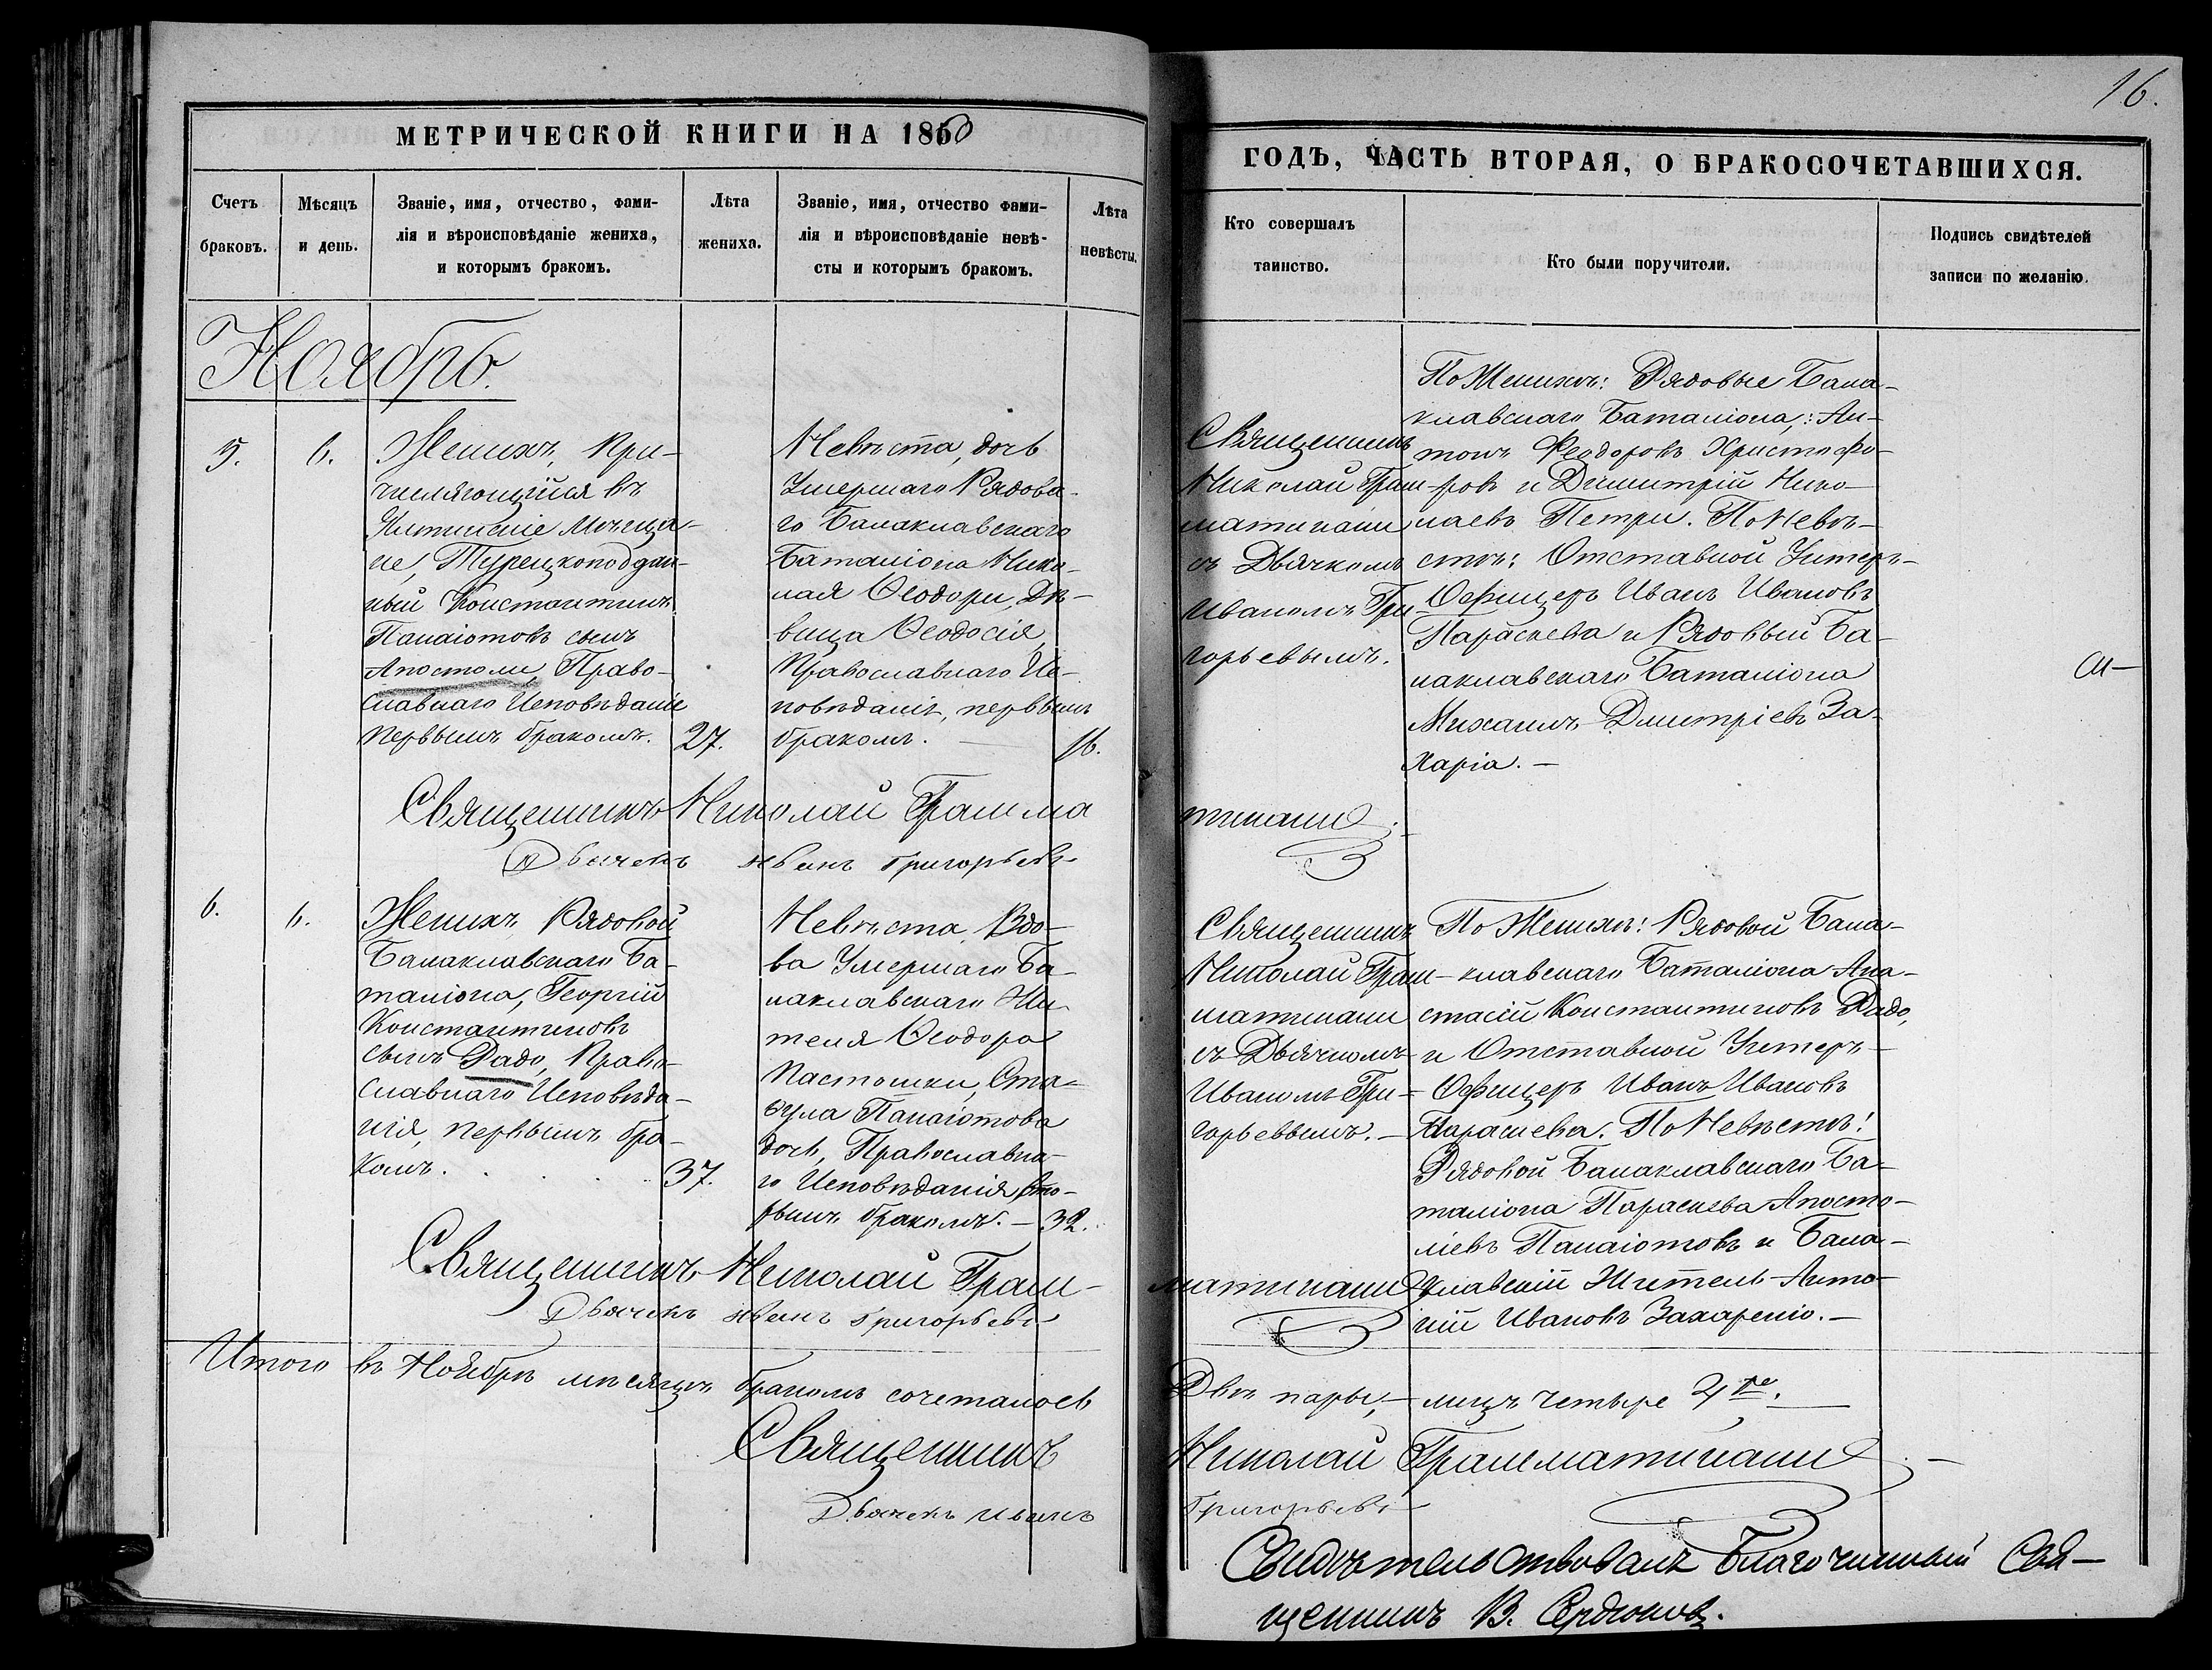 16.
МЕТРИЧЕСКОЙ КНИГИ НА 1860
ГОДЪ, ЧАСТЬ ВТОРАЯ, О БРАКОСОЧЕТАВШИХСЯ.
Счетъ
браковъ.
Мѣсяцъ
и день.
Званіе, имя, отчество, фами-
лія и вѣроисповѣданіе жениха,
и которымъ бракомъ.
Лѣта
жениха.
Званіе, имя, отчество фами-
лія и вѣроисповѣданіе невѣ-
сты и которымъ бракомъ.
Лѣта
невѣсты.
Кто совершалъ
таинство.
Кто были поручители.
Подпись свидѣтелей
записи по желанію.
Ноябрь.
5.
6.
Женихъ, При-
числяющійся въ
Мѣща-
не, Турецкоподдан-
ный Константинъ
Панаіотовъ сынъ
Апостоли, Право-
славнаго Исповѣданіе
Первымъ бракомъ.
27.
Невѣста, дочь
Умершаго Рядова-
го Балаклавскаго
Баталіона Нико-
лая Ѳеодори, Дѣ-
вица Ѳеодосія,
Православнаго Ис-
повѣданія, первымъ
бракомъ.
16.
Священникъ
Николай Грам-
матикати
съ Дьячкомъ
Иваномъ Гри-
горьевымъ.
По Женихѣ: Рядовые Бала-
клавскаго Баталіона: Ан-
тонъ Феодоровъ Христофо-
ровъ и Димитрій Нико-
лаевъ Петри. По Невѣ-
стѣ: Отставной Унтеръ-
Офицеръ Иванъ Ивановъ
Параскева и Рядовый Ба-
лаклавскаго Баталіона
Михаилъ Дмитріевъ За-
харіа.
Священникъ Николай Грамма
тикати
Дьячекъ Иванъ Григорьевъ
6.
6.
Женихъ, Рядовой
Балаклавскаго Ба-
таліона, Георгій
Константиновъ
сынъ Дадо, Право-
славнаго Исповѣда-
нія, первымъ бра-
комъ.
37.
Невѣста, Вдо-
ва Умершаго Ба-
лаклавскаго Жи-
теля Ѳеодора
Пастошки, Ста-
ѳула Панаіотова
дочь, Православна-
го Исповѣданія вто-
рымъ бракомъ. — 32.
Священникъ
Николай Грам-
матикати
съ Дьячкомъ
Иваномъ Гри-
горьевымъ. —
По Женихѣ: Рядовой Бала-
клавскаго Баталіона Ана-
стасій Константиновъ Дадо,
и Отставной Унтеръ-
Офицеръ Иванъ Ивановъ
Параскева. По Невѣстѣ:
Рядовой Балаклавскаго Ба-
таліона Параскева Апосто-
ліевъ Панаіотовъ и Бала-
клавскій Житель Анто-
ній Ивановъ Захареніо. —
Священникъ Николай Грам-
матикати
Дьячекъ Иванъ Григорьевъ
Итого въ Ноябрѣ мѣсяцѣ бракомъ сочеталось
Двѣ пары, — лицъ четыре 4ре.
Священникъ Николай Грамматикати
Дьячекъ Иванъ Григорьевъ
Свидѣтельствовалъ Благочинный Свя-
щенникъ В. Сердюковъ.